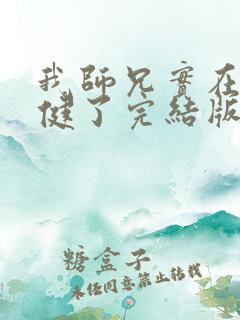 我師兄實在
健了完結版
糖盒子
未經同意禁止轉載